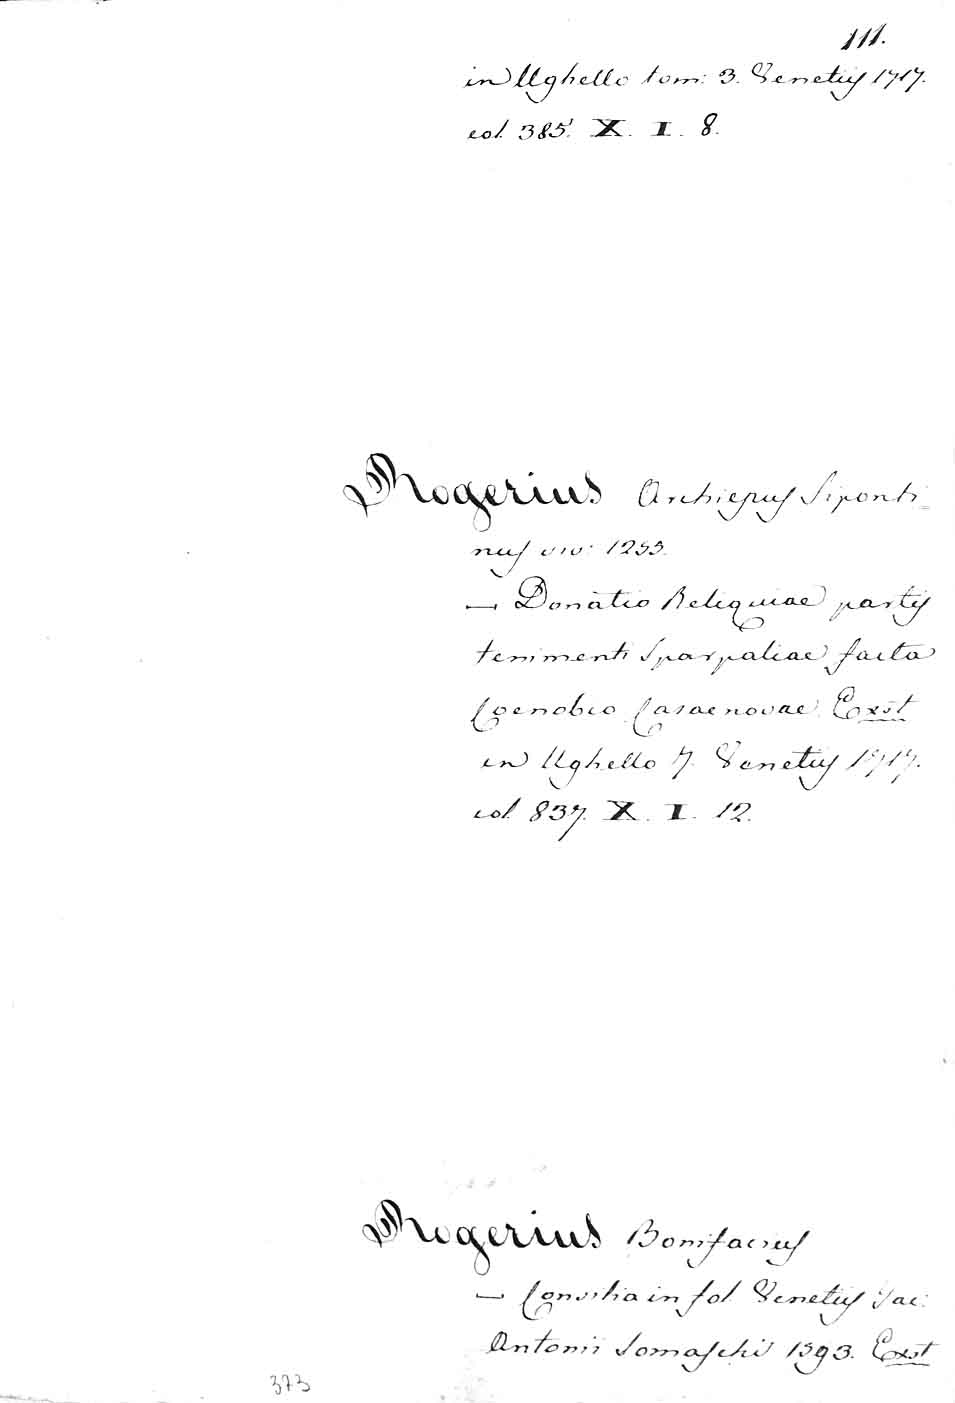 111.
in Ughello tom: 3. Venetiis 1717.
col. 385. X. I. 8.
Rogerius Archiepus Siponti=
nus viv: 1253.
— Donatio Reliquiae partis
tenimenti Sparpaliae facta
Coenobio Casaenovae. Exst
in Ughello 7. Venetiis 1717.
col. 837. X. I. 12.
Rogerius Bonifacius
— Consilia in fol. Venetiis Jac:
Antonii Somaschi 1593. Exst
373